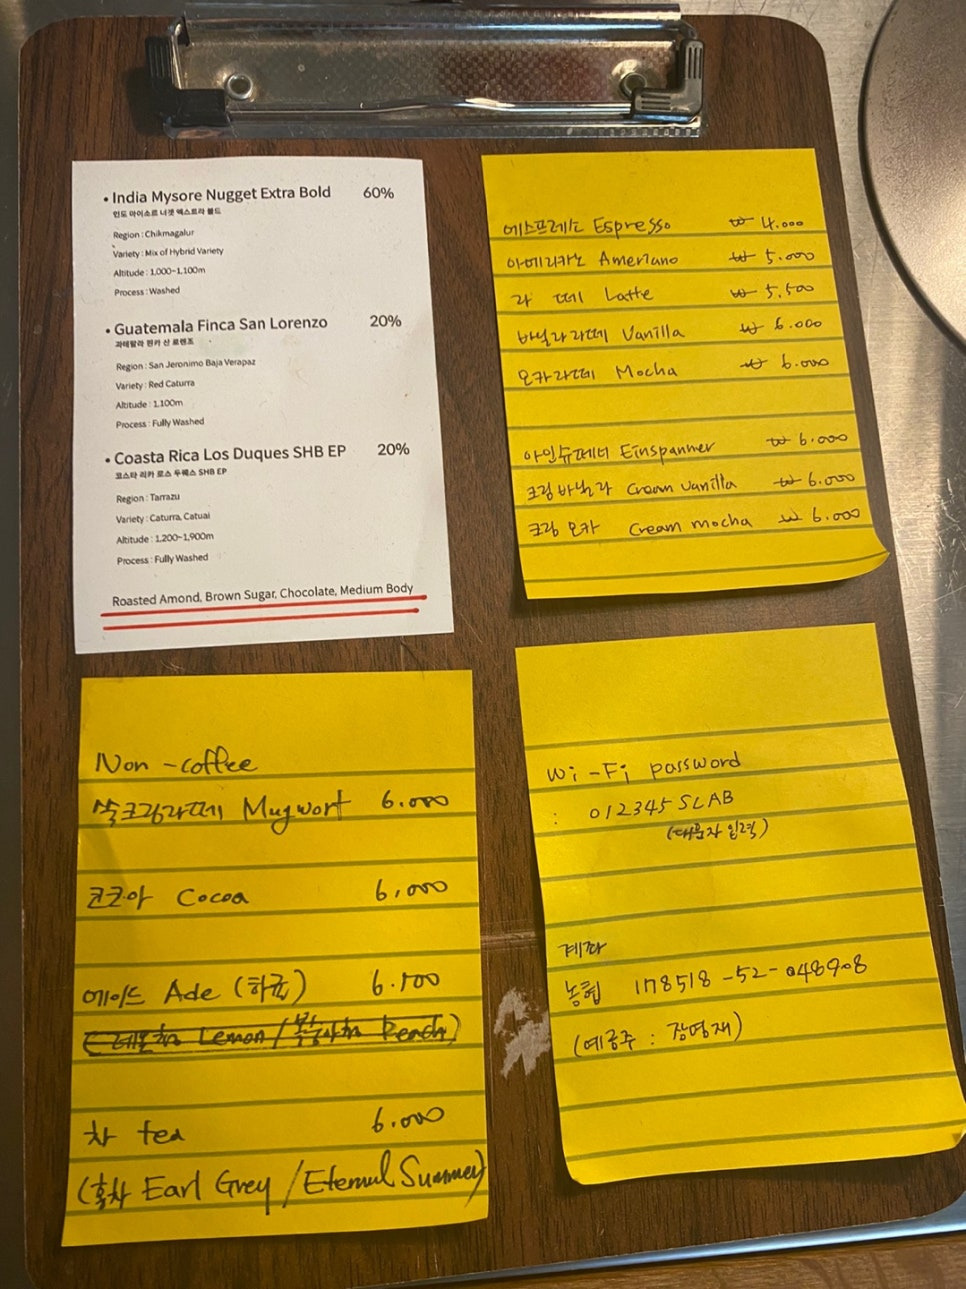 • India Mysore Nugget Extra Bold 60%
인도 마이소르 너겟 엑스트라 볼드
Region : Chikmagalur
Variety : Mix of Hybrid Variety
Altitude : 1,000~1,100m
Process : Washed
• Guatemala Finca San Lorenzo 20%
과테말라 핀카 산 로렌조
Region : San Jeronimo Baja Verapaz
Variety : Red Caturra
Altitude : 1,100m
Process : Fully Washed
• Coasta Rica Los Duques SHB EP 20%
코스타 리카 로스 두퀘스 SHB EP
Region : Tarrazu
Variety : Caturra, Catuai
Altitude : 1,200~1,900m
Process : Fully Washed
Roasted Amond, Brown Sugar, Chocolate, Medium Body
에스프레소 Espresso ₩ 4.000
아메리카노 Ameriano ₩ 5.000
라 떼 Latte ₩ 5.500
바닐라라떼 Vanilla ₩ 6.000
모카라떼 Mocha ₩ 6.000
아인슈페너 Einspanner ₩ 6.000
크림바닐라 Cream vanilla ₩ 6.000
크림 모카 Cream mocha ₩ 6.000
Non-coffee
쑥크림라떼 Mugwort 6.000
코코아 Cocoa 6.000
에이드 Ade (하귤) 6.500
Lemon / Peach)
차 tea 6.000
(홍차 Earl Grey / Eternul Summer)
Wi-Fi password
: 012345SLAB
(대문자 입력)
계좌
농협 178518-52-048908
(예금주 : 장영재)